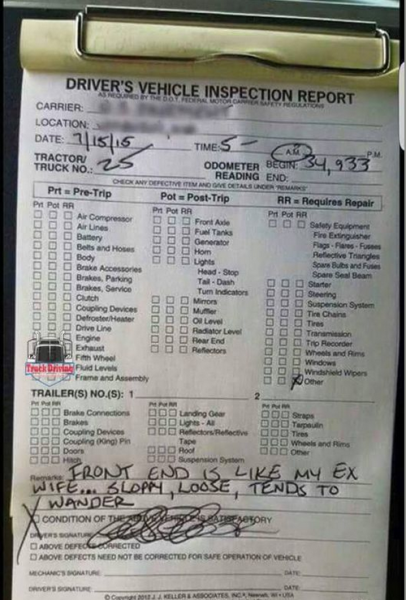 DRIVER'S VEHICLE INSPECTION REPORT
AS REQUIRED BY THE D.O.T. FEDERAL MOTOR CARRIER SAFETY REGULATIONS
CARRIER:
LOCATION:
DATE: 7/15/15 TIME: 5- A.M. P.M.
TRACTOR/ TRUCK NO.: 25 ODOMETER READING BEGIN: 34,933 END:
CHECK ANY DEFECTIVE ITEM AND GIVE DETAILS UNDER "REMARKS"
Prt = Pre-Trip Pot = Post-Trip RR = Requires Repair
Prt Pot RR
Air Compressor
Air Lines
Battery
Belts and Hoses
Body
Brake Accessories
Brakes, Parking
Brakes, Service
Clutch
Coupling Devices
Defroster/Heater
Drive Line
Engine
Exhaust
Fifth Wheel
Fluid Levels
Frame and Assembly
Truck Driving
Prt Pot RR
Front Axle
Fuel Tanks
Generator
Horn
Lights
Head - Stop
Tail - Dash
Turn Indicators
Mirrors
Muffler
Oil Level
Radiator Level
Rear End
Reflectors
Prt Pot RR
Safety Equipment
Fire Extinguisher
Flags - Flares - Fusees
Reflective Triangles
Spare Bulbs and Fuses
Spare Seal Beam
Starter
Steering
Suspension System
Tire Chains
Tires
Transmission
Trip Recorder
Wheels and Rims
Windows
Windshield Wipers
X Other
TRAILER(S) NO.(S): 1 2
Prt Pot RR
Brake Connections
Brakes
Coupling Devices
Coupling (King) Pin
Doors
Hitch
Prt Pot RR
Landing Gear
Lights - All
Reflectors/Reflective
Tape
Roof
Suspension System
Prt Pot RR
Straps
Tarpaulin
Tires
Wheels and Rims
Other
Remarks: FRONT END IS LIKE MY EX
WIFE... SLOPPY, LOOSE, TENDS TO
WANDER
X CONDITION OF THE ABOVE VEHICLE IS SATISFACTORY
DRIVER'S SIGNATURE:
ABOVE DEFECTS CORRECTED
ABOVE DEFECTS NEED NOT BE CORRECTED FOR SAFE OPERATION OF VEHICLE
MECHANIC'S SIGNATURE: DATE:
DRIVER'S SIGNATURE: DATE:
© Copyright 2012 J. J. KELLER & ASSOCIATES, INC.®, Neenah, WI • USA